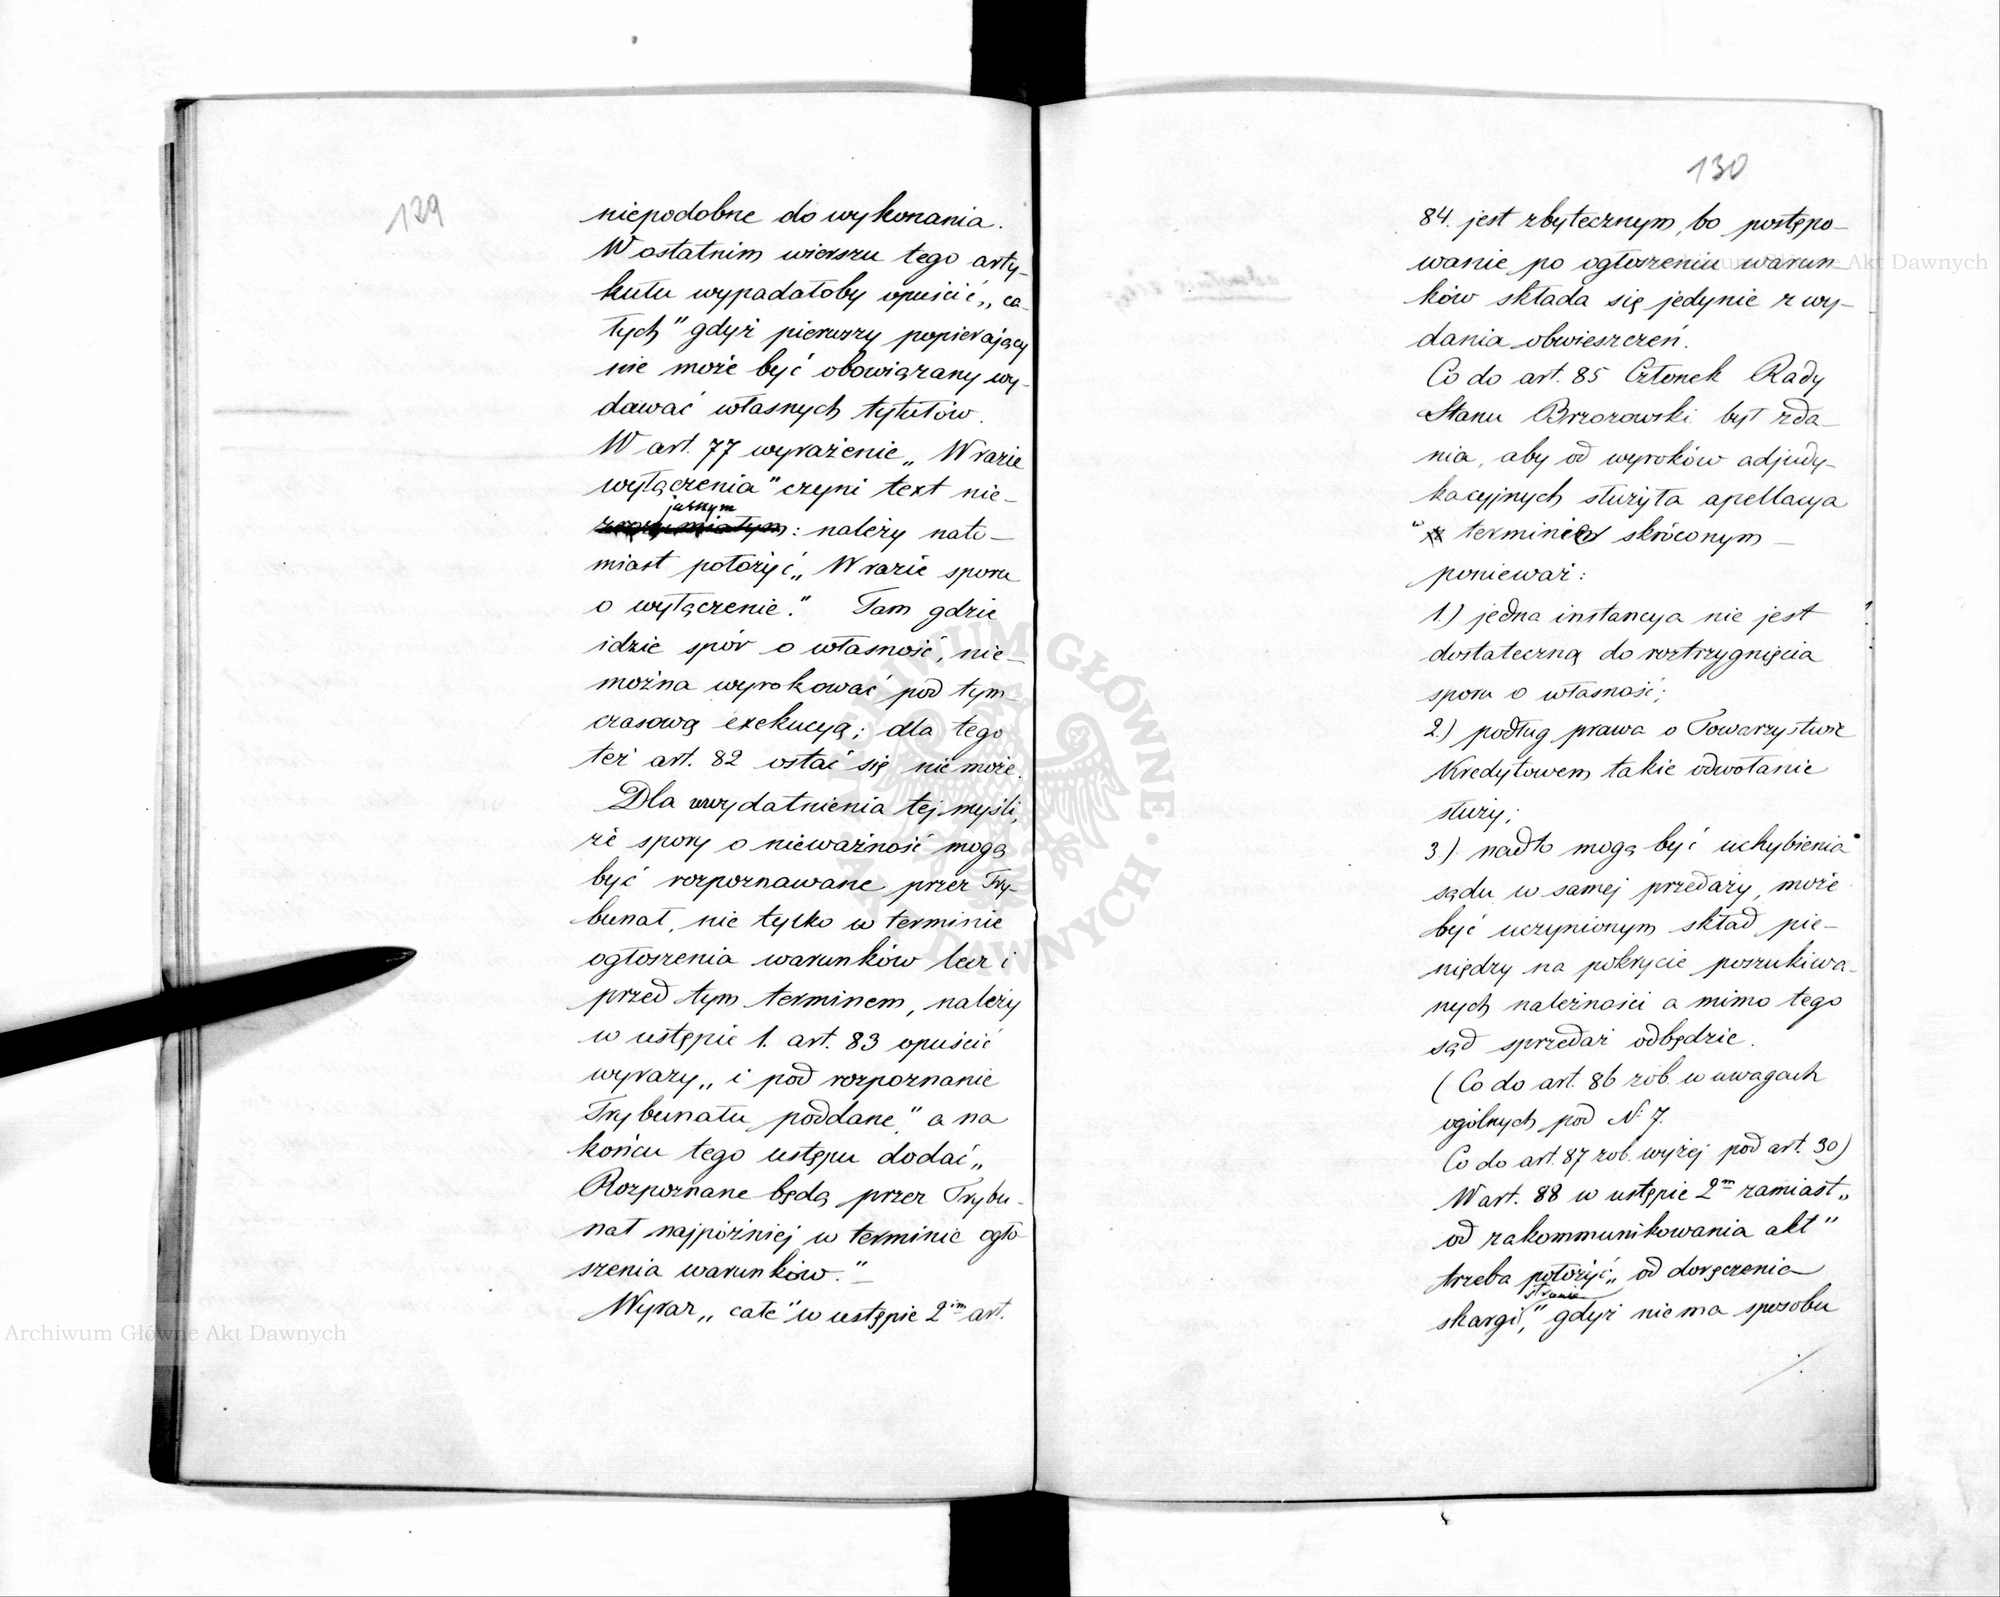 129
niepodobne do wykonania.
W ostatnim wierszu tego arty-
kułu wypadałoby opuścić „ca-
łych" gdyż pierwszy popierający
nie może być obowiązany wy-
dawać własnych tytułów.
W art. 77 wyrażenie „W razie
wyłączenia" czyni text nie-
jasnym
zrozumiałym: należy nato-
miast położyć „W razie sporu
o wyłączenie." Tam gdzie
idzie spór o własność, nie-
można wyrokować pod tym-
czasową exekucyą; dla tego
też art. 82 ostać się nie może.
Dla uwydatnienia tej myśli,
że spory o nieważność mogą
być rozpoznawane przez Try-
bunał, nie tylko w terminie
ogłoszenia warunków lecz i
przed tym terminem, należy
w ustępie 1. art. 83 opuścić
wyrazy „i pod rozpoznanie
Trybunału poddane," a na
końcu tego ustępu dodać „
Rozpoznane będą przez Trybu-
nał najpóźniej w terminie ogło-
szenia warunków."
Wyraz „całe" w ustępie 2im art.
130
84. jest zbytecznym, bo postępo-
wanie po ogłoszeniu warun-
ków składa się jedynie z wy-
dania obwieszczeń.
Co do art. 85 Członek Rady
Stanu Brzozowski był zda-
nia, aby od wyroków adjudy-
kacyjnych służyła apellacya
w terminie skróconym –
ponieważ:
1.) jedna instancya nie jest
dostateczną do roztrzygnięcia
sporu o własność;
2.) podług prawa o Towarzystwie
Kredytowem takie odwołanie
służy;
3.) nadto mogą być uchybienia
sądu w samej przedaży, może
być uczynionym skład pie-
niędzy na pokrycie poszukiwa-
nych należności a mimo tego
sąd sprzedaż odbędzie.
(Co do art. 86 zob. w uwagach
ogólnych pod N: 7.
Co do art. 87 zob. wyżej pod art. 30)
W art. 88 w ustępie 2m zamiast „
od zakommunikowania akt"
trzeba położyć „od doręczenia
stronie
skargi," gdyż nie ma sposobu
./.
Archiwum Główne Akt Dawnych
Archiwum Główne Akt Dawnych
ARCHIWUM GŁÓWNE AKT DAWNYCH